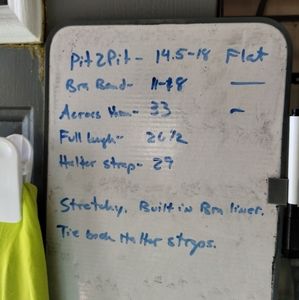 Pit2Pit - 14.5-18 Flat
Bra Band - 11-18 —
Across Hem - 33 –
Full length - 26 1/2
Halter strap - 29
Stretchy. Built in Bra liner.
Tie back Halter straps.